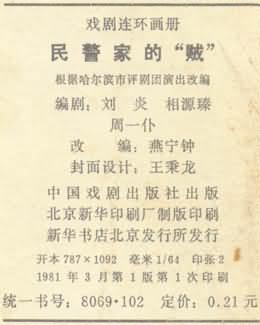 戏剧连环画册
民警家的“贼”
根据哈尔滨市评剧团演出改编
编剧：刘炎 相源臻
周一仆
改编：燕宁钟
封面设计：王秉龙
中国戏剧出版社出版
北京新华印刷厂制版印刷
新华书店北京发行所发行
开本787×1092 毫米1/64 印张2
1981年3月第1版第1次印刷
统一书号：8069·102 定价：0.21元